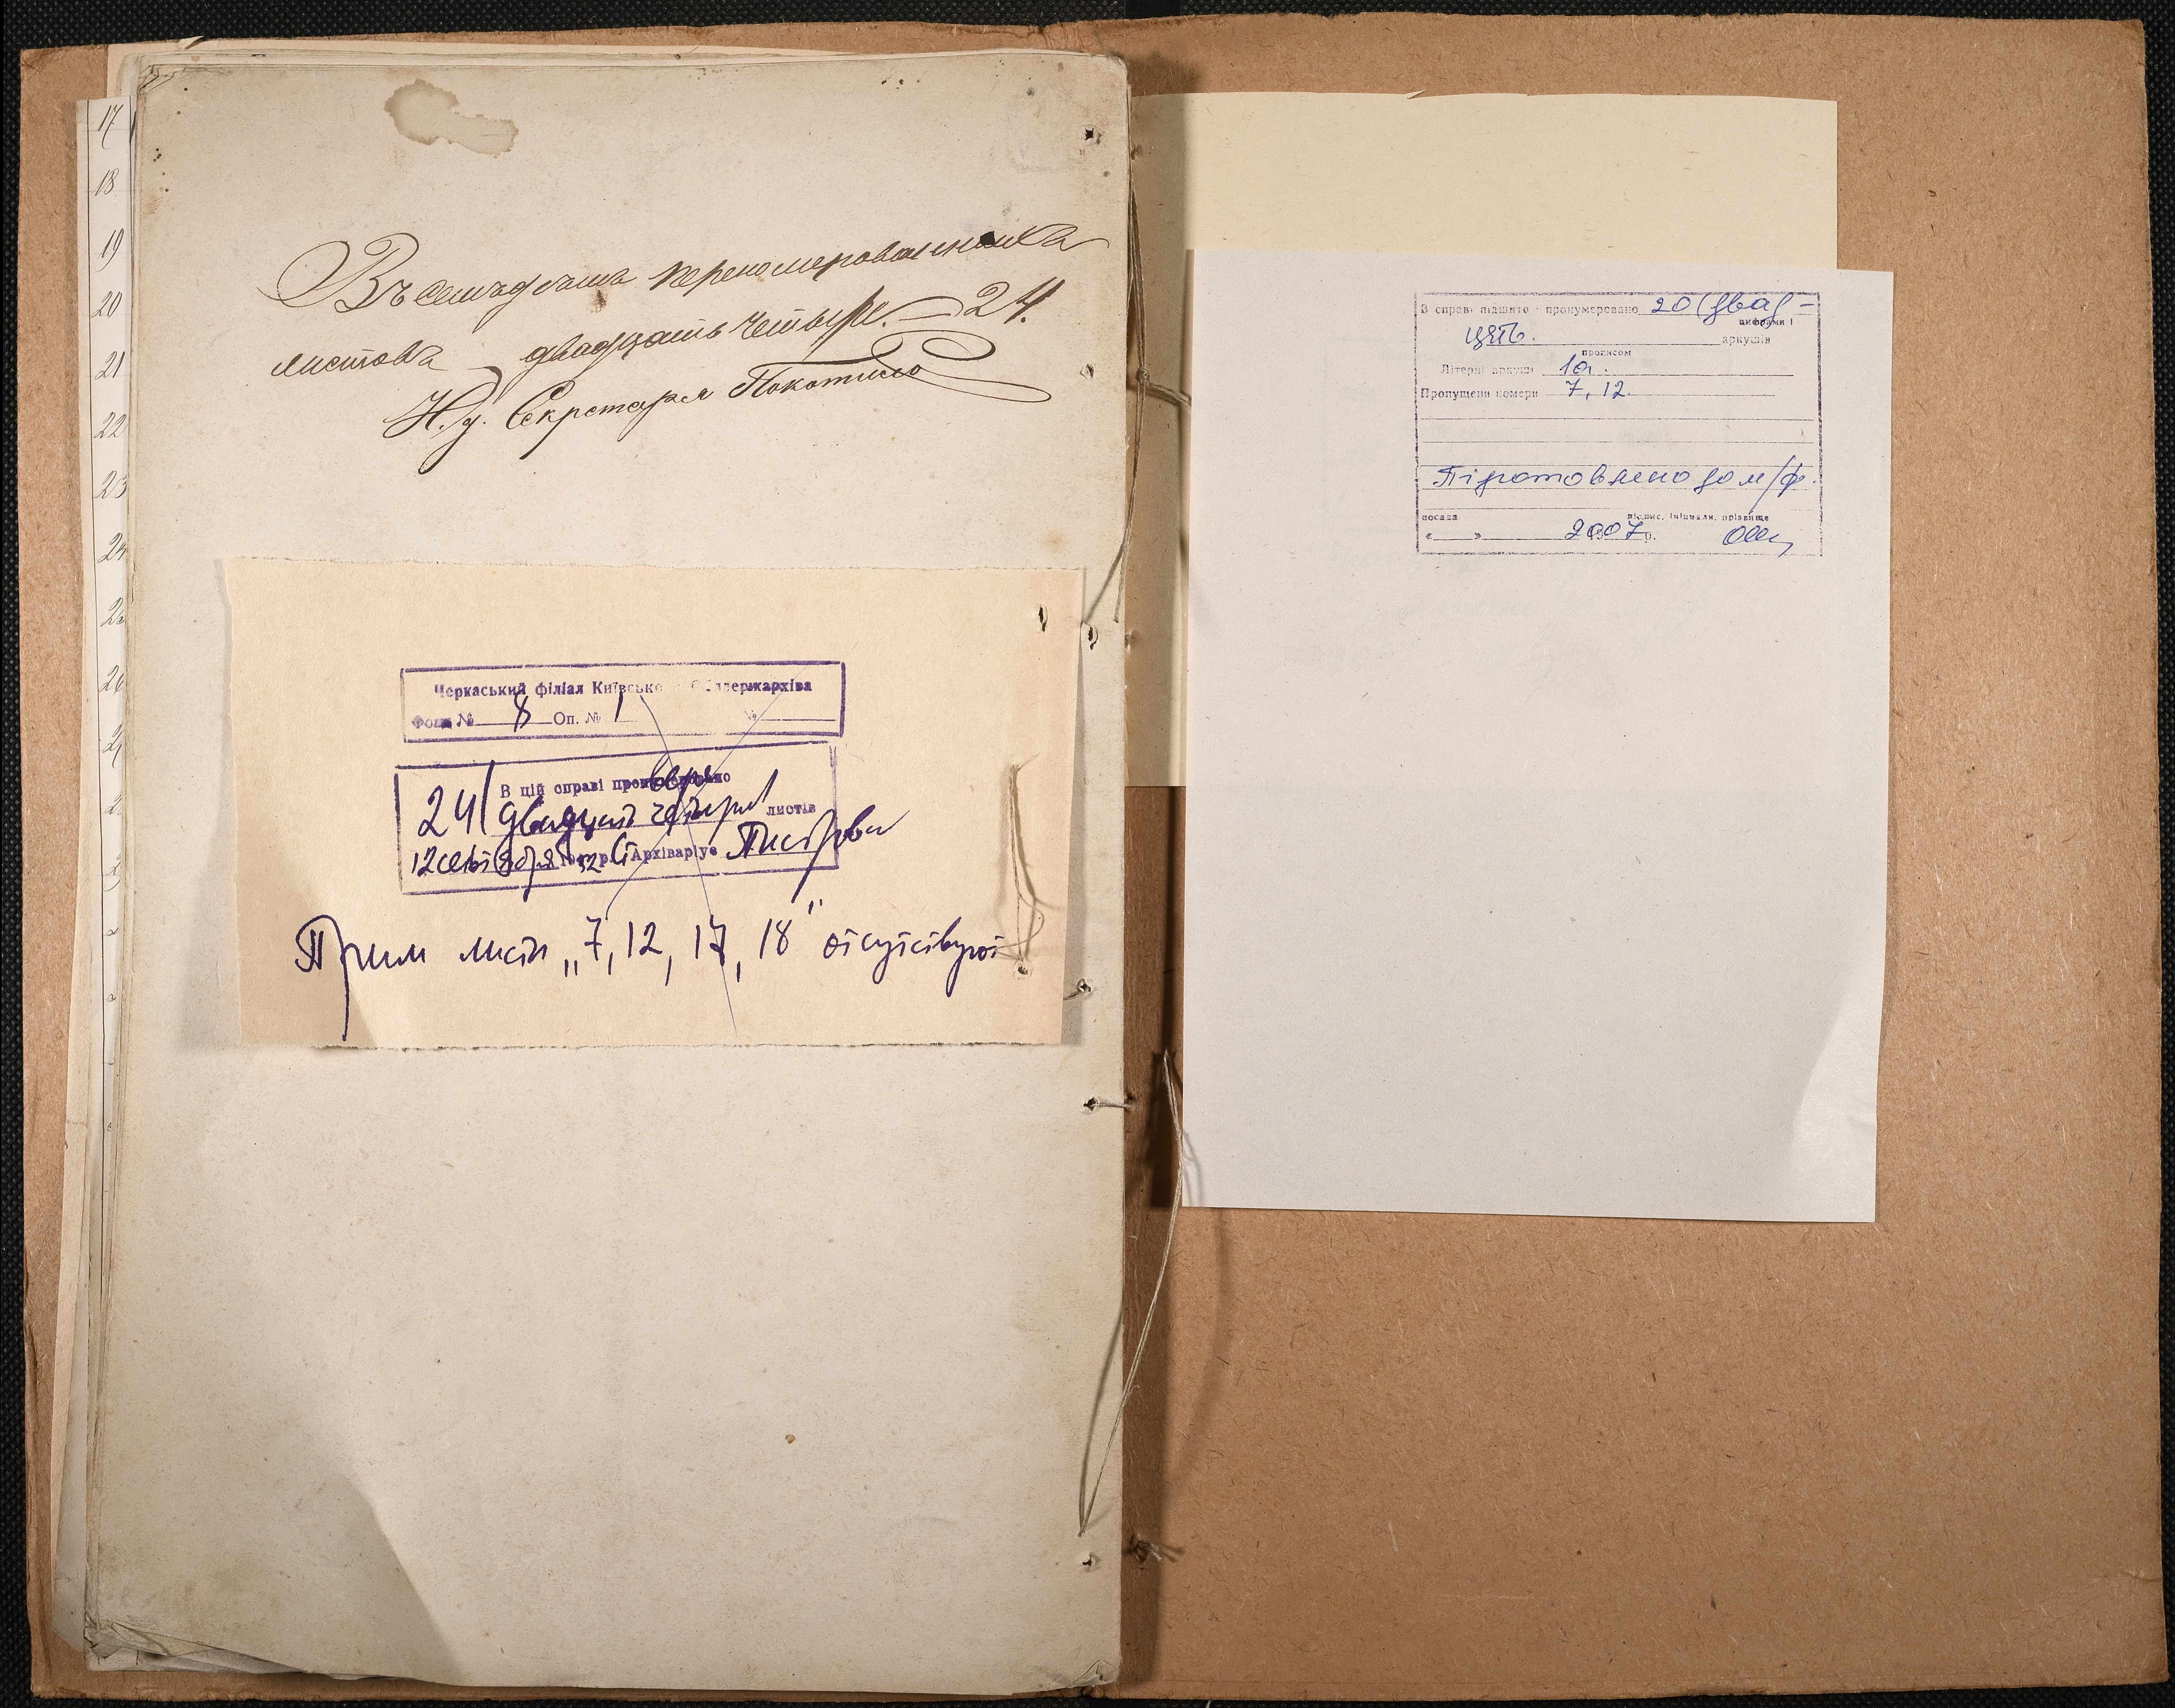 17
18
19
20
21
22
23
24
Въ семъ дѣлѣ перенумерованныхъ
листовъ двадцать четыре. — 24.
И. д. Секретаря Покотило
Черкаський філіал Київсько Облдержархіва
Фонд № 8 Оп. № 1 №
В цій справі пронумеровано
24 двадцать четыре листів
12 сентября 52 р. Архіваріус
Прим листы „7, 12, 17, 18" отсутствуют
В справі підшито і пронумеровано 20 (два) -
цифрами і
цять. аркушів
прописом
Літерні аркуші 1а.
Пропущені номери 7, 12.
Підготовлено до м/ф.
посада підпис, ініціали, прізвище
« » 2007 р.